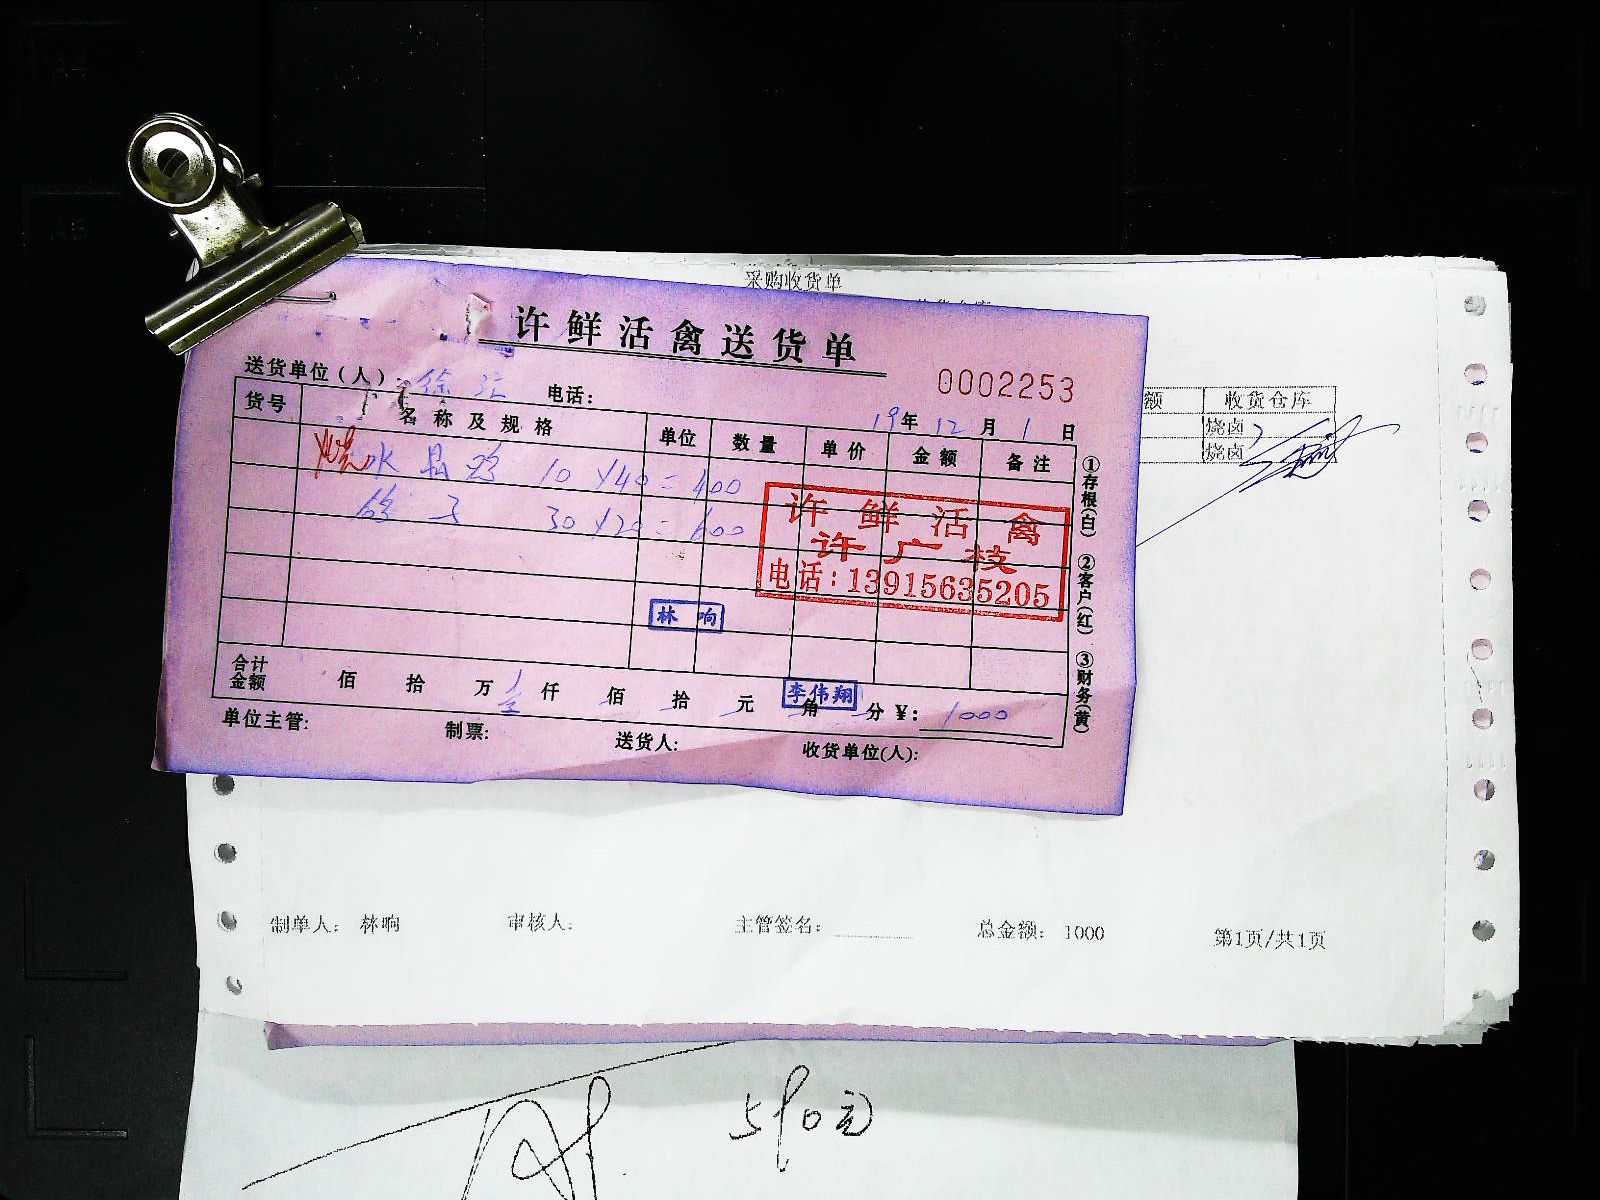 采购收货单
许鲜活禽送货单
0002253
送货单位(人): 徐汇 电话:
19年12月1日
货号 名称及规格 单位 数量 单价 金额 备注
烧 水晶鸡 10 X 40 = 400
鸽子 30 X 20 = 600
许鲜活禽
许广枝
电话:13915635205
林响
李伟翔
合计金额 佰 拾 万 壹 仟 佰 拾 元 角 分 ¥: 1000
单位主管: 制票: 送货人: 收货单位(人):
①存根(白) ②客户(红) ③财务(黄)
额 收货仓库
烧卤
烧卤
制单人: 林响 审核人: 主管签名: 总金额: 1000 第1页/共1页
590元